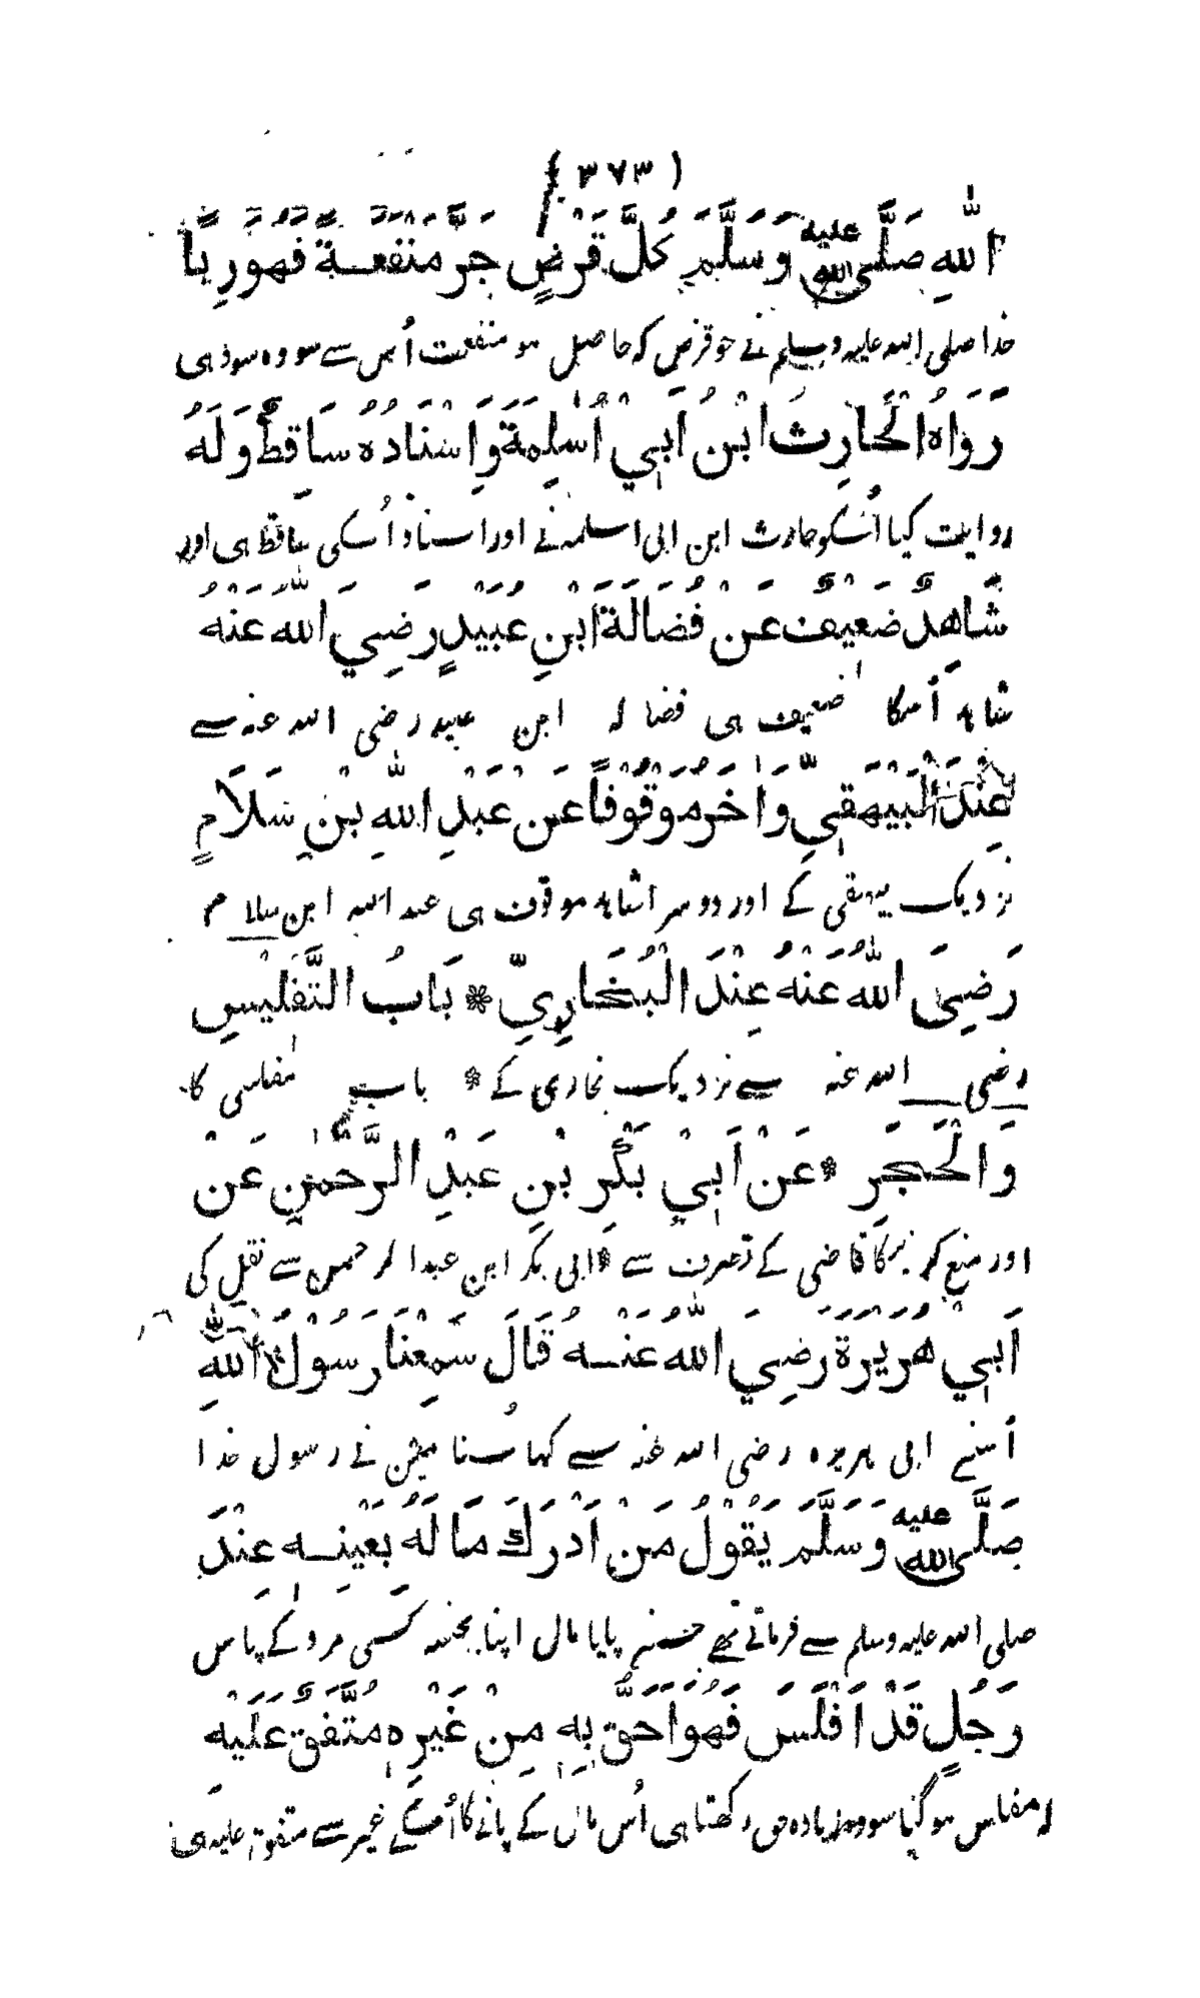 (٣٧٣)
اللهِ صَلَّى اللهُ عليه وَسَلَّمَ كُلُّ قَرْضٍ جَرَّ مَنْفَعَةً فَهُوَ رِبًا
خدا صلی الله علیه وسلم نے جو قرض که حاصل هو منفعت اُس سے سو وه سود هی
رَوَاهُ الْحَارِثُ ابْنُ اَبِيْ اُسْلِمَةَ وَاِسْنَادُهٗ سَاقِطٌ وَلَهُ
روایت کیا اُسکو حارث ابن ابی اسلمه نے اور اسناد اُسکی ساقط هی اور
شَاهِدٌ ضَعِيْفٌ عَنْ فُضَالَةَ ابْنِ عُبَيْدٍ رَضِيَ اللهُ عَنْهُ
شاهد اُسکا ضعیف هی فضاله ابن عبید رضی الله عنه سے
عِنْدَ الْبَيْهَقِيِّ وَاٰخَرُ مَوْقُوْفًا عَنْ عَبْدِ اللهِ بْنِ سَلَامٍ
نزدیک بیهقی کے اور دوسرا شاهد موقوف هی عبد الله ابن سلام
رَضِيَ اللهُ عَنْهُ عِنْدَ الْبُخَارِيِّ * بَابُ التَّفْلِيْسِ
رضی الله عنه سے نزدیک بخاری کے * باب مفلسی کا
وَالْحَجْرِ * عَنْ اَبِيْ بَكْرِ بْنِ عَبْدِ الرَّحْمٰنِ عَنْ
اور منع کرنیکا قاضی کے تصرف سے * ابی بکر ابن عبد الرحمن سے نقل کی
اَبِيْ هُرَيْرَةَ رَضِيَ اللهُ عَنْهُ قَالَ سَمِعْنَا رَسُوْلَ اللهِ
اُسنے ابی هریره رضی الله عنه سے کہا سُنا میں نے رسول خدا
صَلَّى اللهُ عليه وَسَلَّمَ يَقُوْلُ مَنْ اَدْرَكَ مَا لَهُ بِعَيْنِهٖ عِنْدَ
صلی الله علیه وسلم سے فرماتے تهے جسنے پایا مال اپنا بجنسه کسی مرد کے پاس
رَجُلٍ قَدْ اَفْلَسَ فَهُوَ اَحَقُّ بِهٖ مِنْ غَيْرِهٖ مُتَّفَقٌ عَلَيْهِ
مفلس هو گیا سو وه زیاده حق رکهتا هی اُس مال کے پانے کا اُسکے غیر سے متفق علیه هی